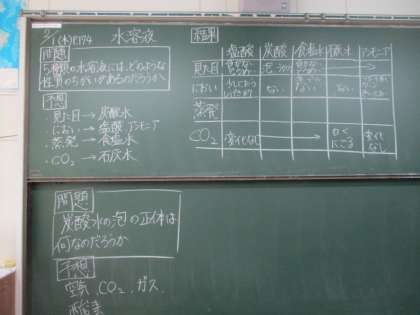 P174 水溶液
問題
5種類の水溶液には、どのような
性質のちがいがあるのだろうか
予想
・見た目→炭酸水
・におい→塩酸 アンモニア
・蒸発→食塩水
・CO2→石灰水
結果
塩酸 炭酸 食塩水 石灰水 アンモニア
見た目 泡
におい ない ない
蒸発
CO2 変化なし → 白くにごる 変化なし
問題
炭酸水の泡の正体は
何なのだろうか
予想
空気、CO2、ガス、
酸素